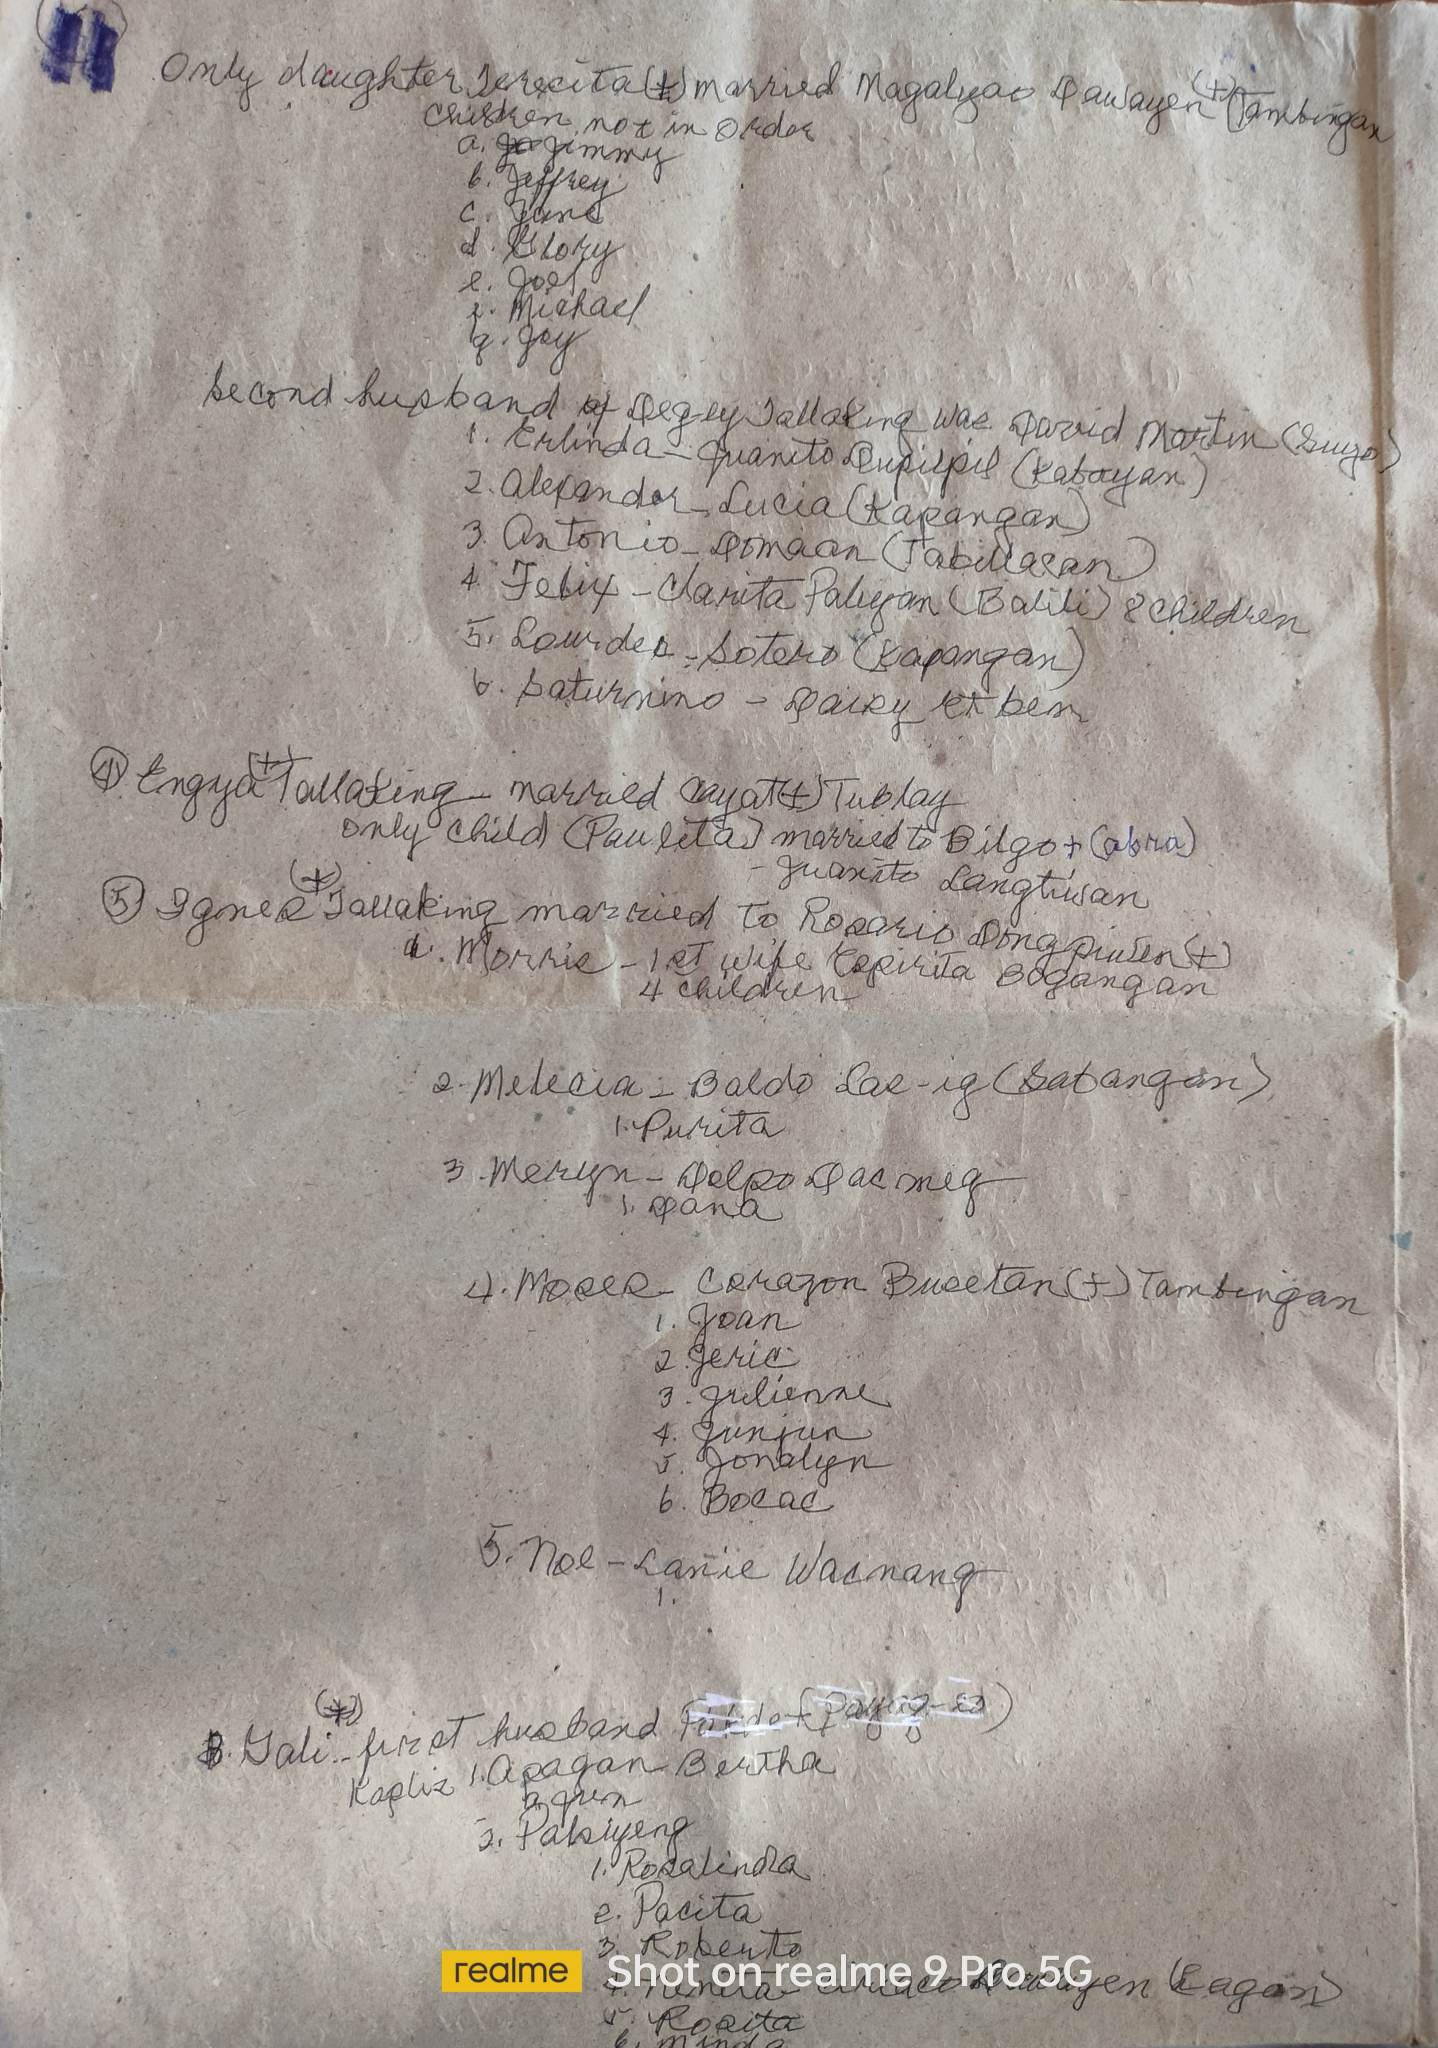 11
Only daughter Teresita (+) married Magalyao Dawayen (+) (Tambingan
Children not in order
a. Jimmy
b. Jeffrey
c. June
d. Glory
e. Joel
f. Michael
g. Joy
Second husband of Degey Tallaking was David Martin (Guyo)
1. Erlinda - Juanito Dupilpil (Kabayan)
2. Alexander - Lucia (Kapangan)
3. Antonio - Domaan (
4. Felix - Clarita Paliyan (Balili) 8 children
5. Lourdes - Sotero (Kapangan)
6. Saturnino - Daisy
4 Engya (+) Tallaking - married Cayat (+) Tublay
only child (Paulita) married to Bilgo + (abra)
- Juanito Langtiwan
5 Ignes (+) Tallaking married to Rosario Dongpinsen (+)
1. Morris - 1st wife Espirita Bogangan
4 children
2. Melecia - Baldo Las-ig (Sabangan)
1. Purita
3. Meryn - Delpo Dacmeg
1. Dana
4. Moses - Corazon Busetan (+) Tambingan
1. Joan
2. Jeric
3. Julienne
4. Junjun
5. Jonalyn
6. Bocac
5. Noe - Lanie Wacnang
1.
B. Gali (+) - first husband
Kapliz 1. Apagan - Bertha
a. Jun
2. Palsiyeng
1. Rosalinda
2. Pacita
3. Roberto
realme Shot on realme 9 Pro 5G
5. Rosita
6. Minda